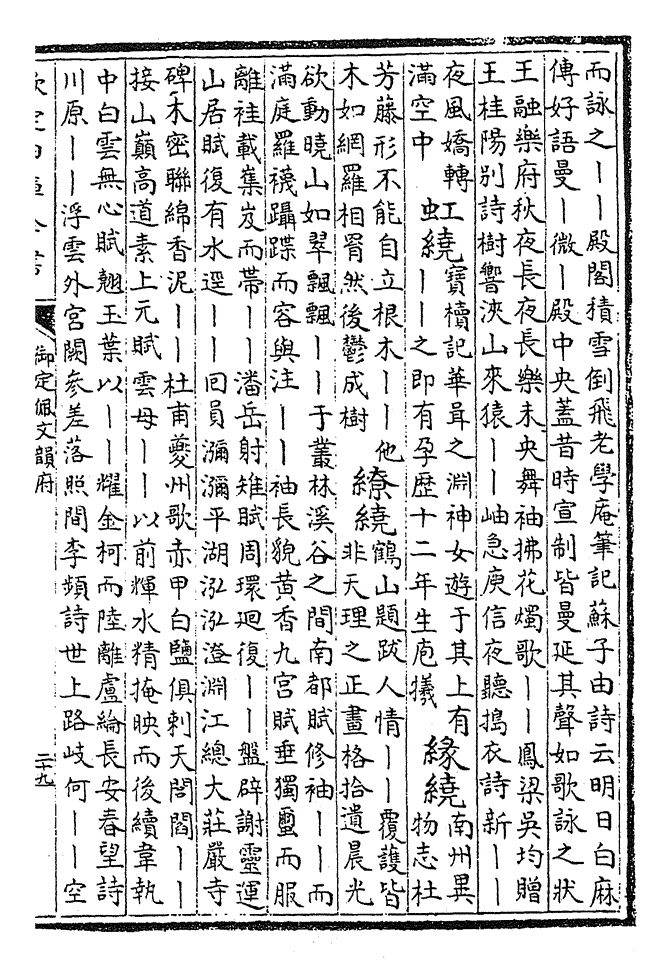 而詠之｜｜殿閣積雪倒飛老學庵筆記蘇子由詩云明日白麻
傳好語曼｜微｜殿中央蓋昔時宣制皆曼延其聲如歌詠之狀
王融樂府秋夜長夜長樂未央舞袖拂花燭歌｜｜鳳梁吳均贈
王桂陽別詩樹響浹山來猿｜｜岫急庾信夜聽搗衣詩新｜｜
夜風嬌轉
滿空中
虹繞
寶櫝記華胥之淵神女遊于其上有
｜｜之即有孕歴十二年生庖犧
緣繞
南州異
物志杜
芳藤形不能自立根木｜｜他
木如網羅相罥然後鬱成樹
繚繞
鶴山題跋人情｜｜覆護皆
非天理之正畫格拾遺晨光
欲動曉山如翠飄飄｜｜于叢林溪谷之間南都賦修袖｜｜而
滿庭羅襪躡蹀而容與注｜｜袖長貌黄香九宮賦垂獨璽而服
離袿載集岌而帶｜｜潘岳射雉賦周環廻復｜｜盤辟謝靈運
山居賦復有水逕｜｜囘員瀰瀰平湖泓泓澄淵江總大莊嚴寺
碑木密聯綿香泥｜｜杜甫夔州歌赤甲白鹽俱刺天閭閻｜｜
接山巔高道素上元賦雲母｜｜以前輝水精掩映而後續韋執
中白雲無心賦翹玉葉以｜｜耀金柯而陸離盧綸長安春望詩
川原｜｜浮雲外宮闕參差落照間李頻詩世上路岐何｜｜空
欽定四庫全書
御定佩文韻府
二十九